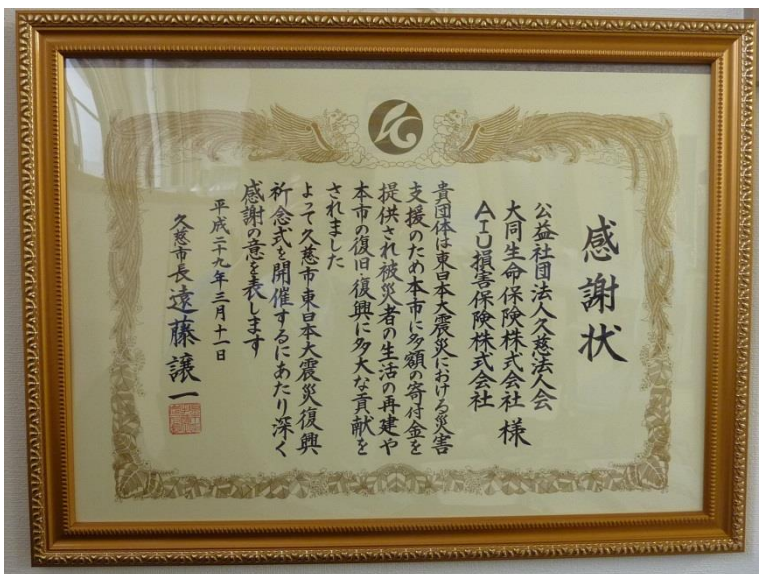 感謝状
公益社団法人久慈法人会
大同生命保険株式会社 様
AIU損害保険株式会社
貴団体は東日本大震災における災害
支援のため本市に多額の寄付金を
提供され被災者の生活の再建や
本市の復旧・復興に多大な貢献を
されました
よって久慈市東日本大震災復興
祈念式を開催するにあたり深く
感謝の意を表します
平成二十九年三月十一日
久慈市長 遠藤譲一